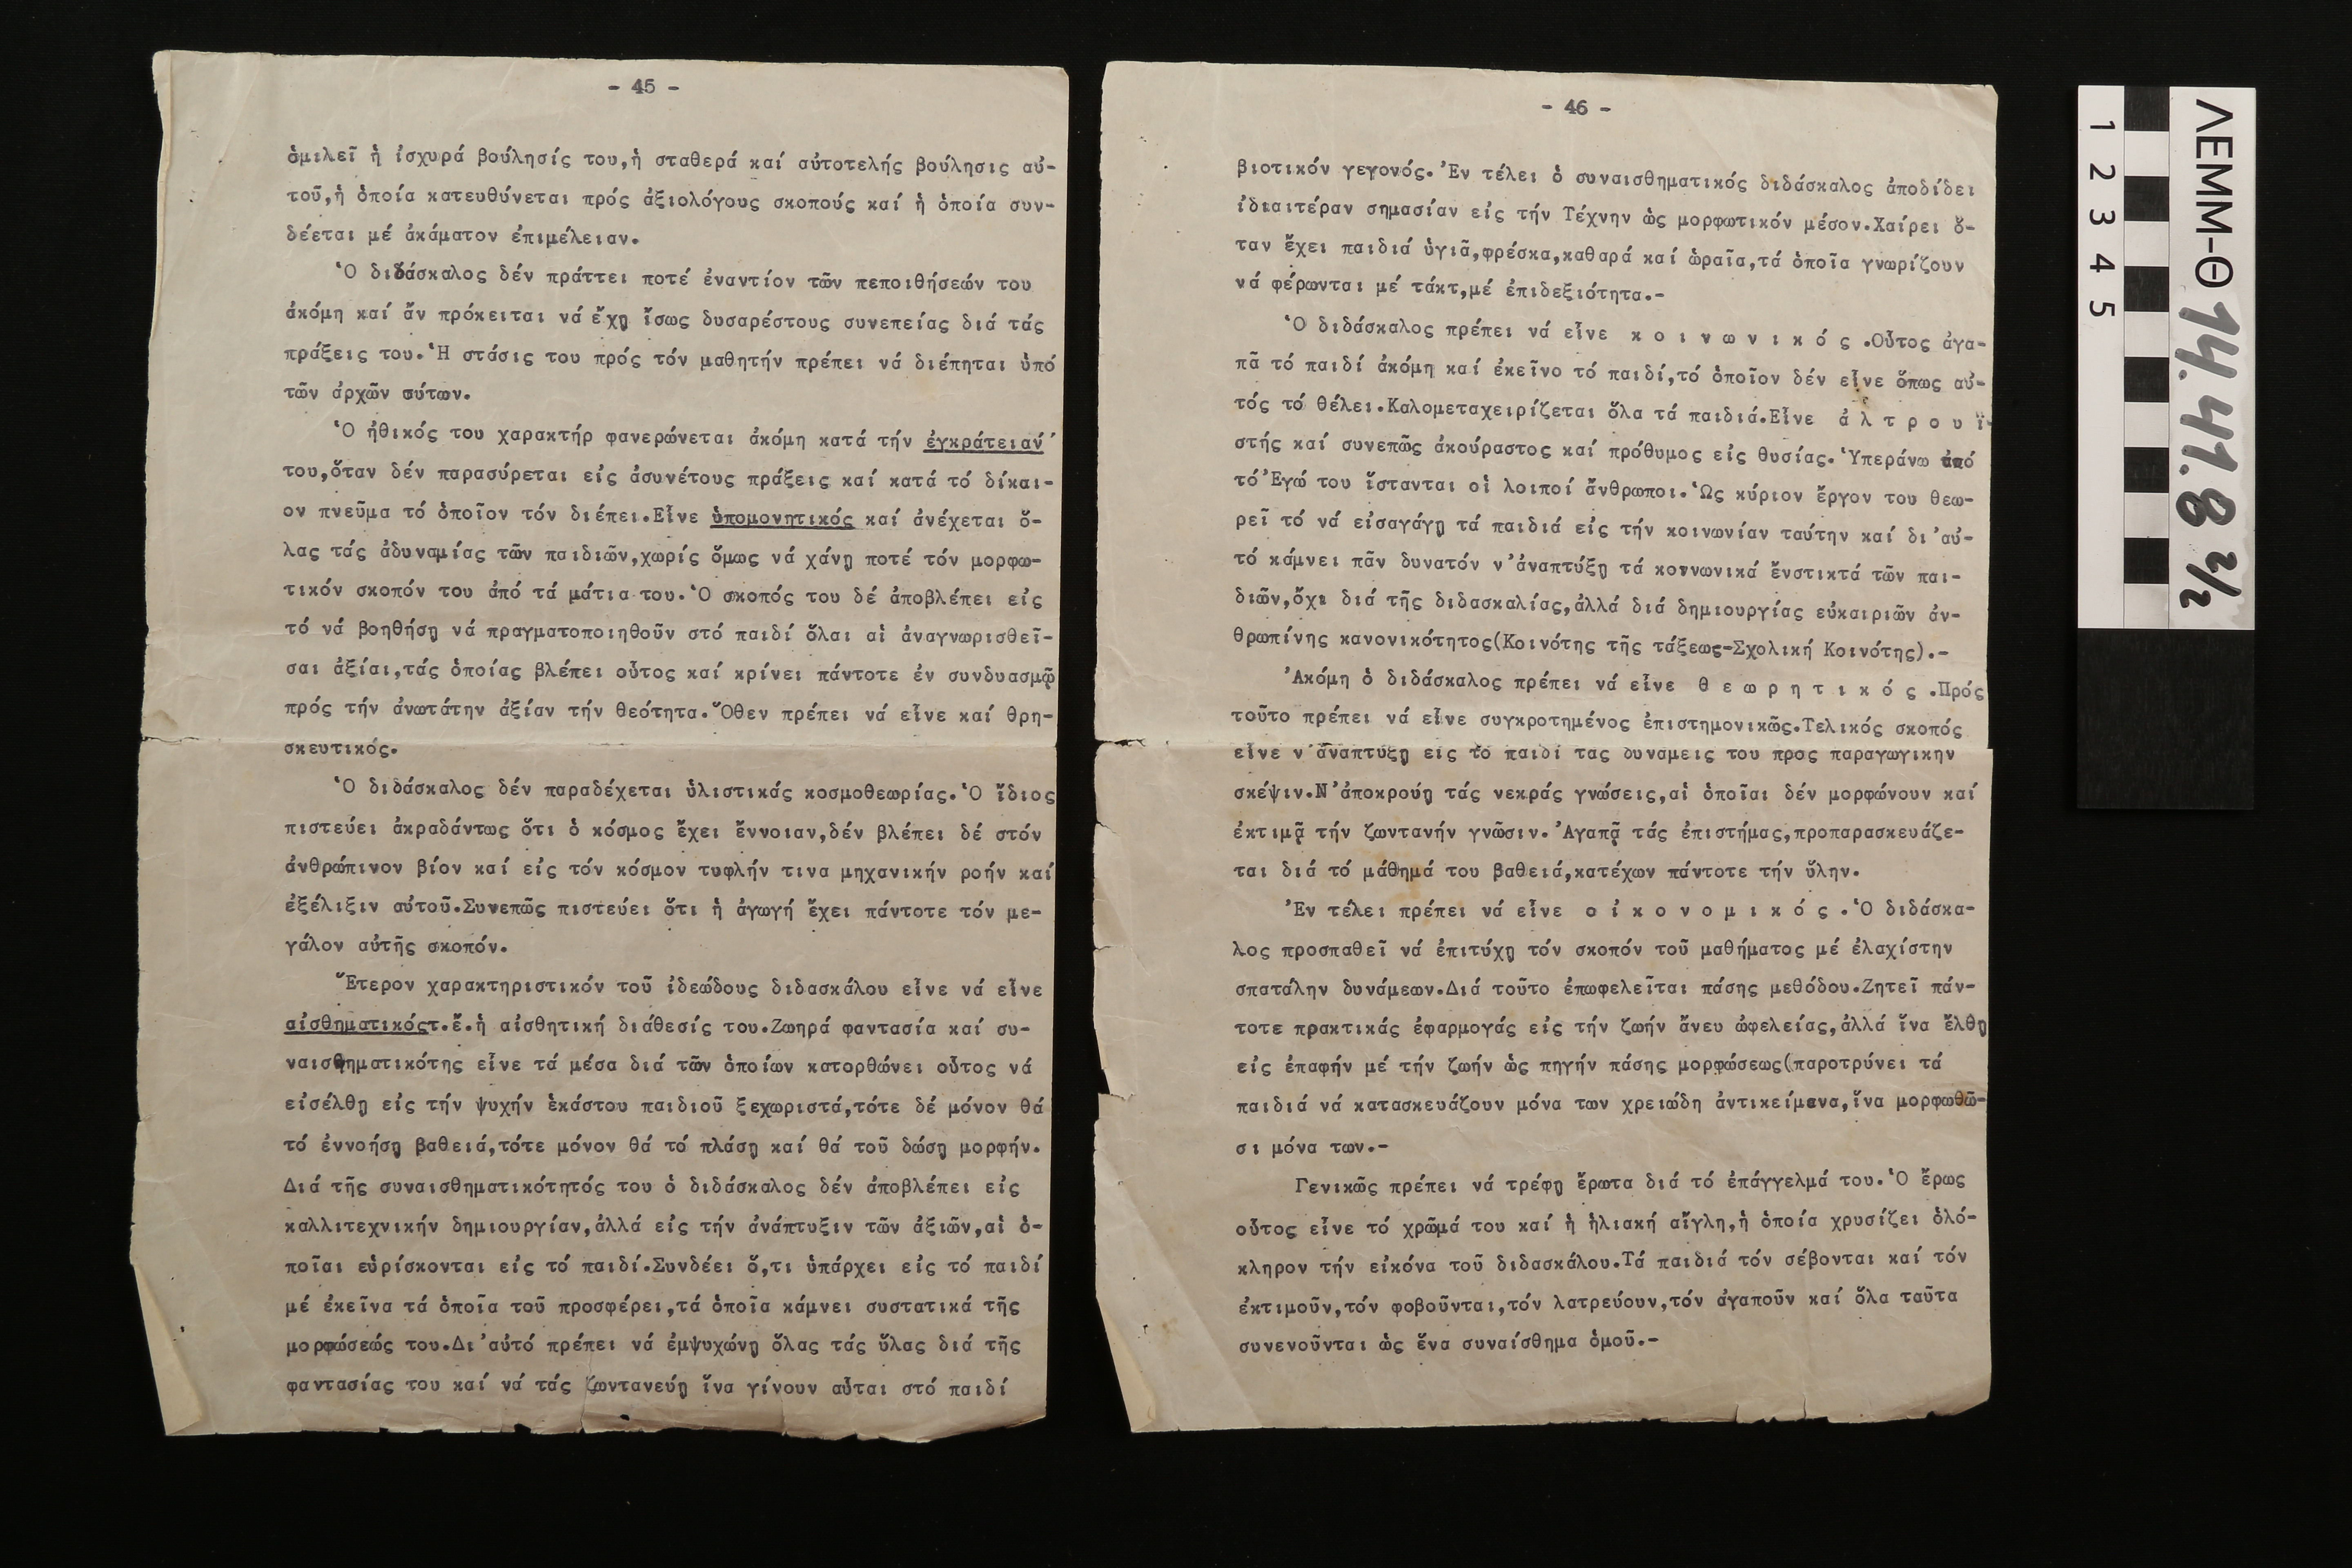 - 45 -
ὁμιλεῖ ἡ ἰσχυρά βούλησίς του,ἡ σταθερά καί αὐτοτελής βούλησις αὐ-
τοῦ,ἡ ὁποία κατευθύνεται πρός ἀξιολόγους σκοπούς καί ἡ ὁποία συν-
δέεται μέ ἀκάματον ἐπιμέλειαν.
Ὁ διδάσκαλος δέν πράττει ποτέ ἐναντίον τῶν πεποιθήσεών του
ἀκόμη καί ἄν πρόκειται νά ἔχῃ ἴσως δυσαρέστους συνεπείας διά τάς
πράξεις του.Ἡ στάσις του πρός τόν μαθητήν πρέπει νά διέπηται ὑπό
τῶν ἀρχῶν αύτων.
Ὁ ἠθικός του χαρακτήρ φανερώνεται ἀκόμη κατά τήν ἐγκράτειαν΄
του,ὅταν δέν παρασύρεται εἰς ἀσυνέτους πράξεις καί κατά τό δίκαι-
ον πνεῦμα τό ὁποῖον τόν διέπει.Εἶνε ὑπομονητικός καί ἀνέχεται ὅ-
λας τάς ἀδυναμίας τῶν παιδιῶν,χωρίς ὅμως νά χάνῃ ποτέ τόν μορφω-
τικόν σκοπόν του ἀπό τά μάτια του.Ὁ σκοπός του δέ ἀποβλέπει εἰς
τό νά βοηθήσῃ νά πραγματοποιηθοῦν στό παιδί ὅλαι αἱ ἀναγνωρισθεῖ-
σαι ἀξίαι,τάς ὁποίας βλέπει οὗτος καί κρίνει πάντοτε ἐν συνδυασμῷ
πρός τήν ἀνωτάτην ἀξίαν τήν θεότητα.Ὅθεν πρέπει νά εἶνε καί θρη-
σκευτικός.
Ὁ διδάσκαλος δέν παραδέχεται ὑλιστικάς κοσμοθεωρίας.Ὁ ἴδιος
πιστεύει ἀκραδάντως ὅτι ὁ κόσμος ἔχει ἔννοιαν,δέν βλέπει δέ στόν
ἀνθρώπινον βίον καί εἰς τόν κόσμον τυφλήν τινα μηχανικήν ροήν καί
ἐξέλιξιν αὐτοῦ.Συνεπῶς πιστεύει ὅτι ἡ ἀγωγή ἔχει πάντοτε τόν με-
γάλον αὐτῆς σκοπόν.
Ἕτερον χαρακτηριστικόν τοῦ ἰδεώδους διδασκάλου εἶνε νά εἶνε
αἰσθηματικόςτ.ἔ.ἡ αἰσθητική διάθεσίς του.Ζωηρά φαντασία καί συ-
ναισθηματικότης εἶνε τά μέσα διά τῶν ὁποίων κατορθώνει οὗτος νά
εἰσέλθῃ εἰς τήν ψυχήν ἑκάστου παιδιοῦ ξεχωριστά,τότε δέ μόνον θά
τό ἐννοήσῃ βαθειά,τότε μόνον θά τό πλάσῃ καί θά τοῦ δώσῃ μορφήν.
Διά τῆς συναισθηματικότητός του ὁ διδάσκαλος δέν ἀποβλέπει εἰς
καλλιτεχνικήν δημιουργίαν,ἀλλά εἰς τήν ἀνάπτυξιν τῶν ἀξιῶν,αἱ ὁ-
ποῖαι εὑρίσκονται εἰς τό παιδί.Συνδέει ὅ,τι ὑπάρχει εἰς τό παιδί
μέ ἐκεῖνα τά ὁποῖα τοῦ προσφέρει,τά ὁποῖα κάμνει συστατικά τῆς
μορφώσεώς του.Δι'αὐτό πρέπει νά ἐμψυχώνῃ ὅλας τάς ὕλας διά τῆς
φαντασίας του καί νά τάς ζωντανεύῃ ἵνα γίνουν αὗται στό παιδί
- 46 -
βιοτικόν γεγονός.Ἐν τέλει ὁ συναισθηματικός διδάσκαλος ἀποδίδει
ἰδιαιτέραν σημασίαν εἰς τήν Τέχνην ὡς μορφωτικόν μέσον.Χαίρει ὅ-
ταν ἔχει παιδιά ὑγιᾶ,φρέσκα,καθαρά καί ὡραῖα,τά ὁποῖα γνωρίζουν
νά φέρωνται μέ τάκτ,μέ ἐπιδεξιότητα.-
Ὁ διδάσκαλος πρέπει νά εἶνε κ ο ι ν ω ν ι κ ό ς .Οὗτος ἀγα-
πᾶ τό παιδί ἀκόμη καί ἐκεῖνο τό παιδί,τό ὁποῖον δέν εἶνε ὅπως αὐ-
τός τό θέλει.Καλομεταχειρίζεται ὅλα τά παιδιά.Εἶνε ἀ λ τ ρ ο υ ϊ-
στής καί συνεπῶς ἀκούραστος καί πρόθυμος εἰς θυσίας.Ὑπεράνω ἀπό
τό'Εγώ του ἵστανται οἱ λοιποί ἄνθρωποι.Ὡς κύριον ἔργον του θεω-
ρεῖ τό νά εἰσαγάγῃ τά παιδιά εἰς τήν κοινωνίαν ταύτην καί δι'αὐ-
τό κάμνει πᾶν δυνατόν ν'ἀναπτύξῃ τά κοινωνικά ἔνστικτά τῶν παι-
διῶν,ὄχι διά τῆς διδασκαλίας,ἀλλά διά δημιουργίας εὐκαιριῶν ἀν-
θρωπίνης κανονικότητος(Κοινότης τῆς τάξεως-Σχολική Κοινότης).-
Ἀκόμη ὁ διδάσκαλος πρέπει νά εἶνε θ ε ω ρ η τ ι κ ό ς .Πρός
τοῦτο πρέπει νά εἶνε συγκροτημένος ἐπιστημονικῶς.Τελικός σκοπός
εἶνε ν'ἀναπτύξῃ εἰς τό παιδί τάς δυνάμεις του πρός παραγωγικήν
σκέψιν.Ν'ἀποκρούῃ τάς νεκράς γνώσεις,αἱ ὁποῖαι δέν μορφώνουν καί
ἐκτιμᾷ τήν ζωντανήν γνῶσιν.Ἀγαπᾷ τάς ἐπιστήμας,προπαρασκευάζε-
ται διά τό μάθημά του βαθειά,κατέχων πάντοτε τήν ὕλην.
Ἐν τέλει πρέπει νά εἶνε ο ἰ κ ο ν ο μ ι κ ό ς .Ὁ διδάσκα-
λος προσπαθεῖ νά ἐπιτύχῃ τόν σκοπόν τοῦ μαθήματος μέ ἐλαχίστην
σπατάλην δυνάμεων.Διά τοῦτο ἐπωφελεῖται πάσης μεθόδου.Ζητεῖ πάν-
τοτε πρακτικάς ἐφαρμογάς εἰς τήν ζωήν ἄνευ ὠφελείας,ἀλλά ἵνα ἔλθῃ
εἰς ἐπαφήν μέ τήν ζωήν ὡς πηγήν πάσης μορφώσεως(παροτρύνει τά
παιδιά νά κατασκευάζουν μόνα των χρειώδη ἀντικείμενα,ἵνα μορφωθῶ-
σι μόνα των.-
Γενικῶς πρέπει νά τρέφῃ ἔρωτα διά τό ἐπάγγελμά του.Ὁ ἔρως
οὗτος εἶνε τό χρῶμά του καί ἡ ἡλιακή αἴγλη,ἡ ὁποία χρυσίζει ὁλό-
κληρον τήν εἰκόνα τοῦ διδασκάλου.Τά παιδιά τόν σέβονται καί τόν
ἐκτιμοῦν,τόν φοβοῦνται,τόν λατρεύουν,τόν ἀγαποῦν καί ὅλα ταῦτα
συνενοῦνται ὡς ἕνα συναίσθημα ὁμοῦ.-
ΛΕΜΜ-Θ 14.41.8 2/2
1 2 3 4 5